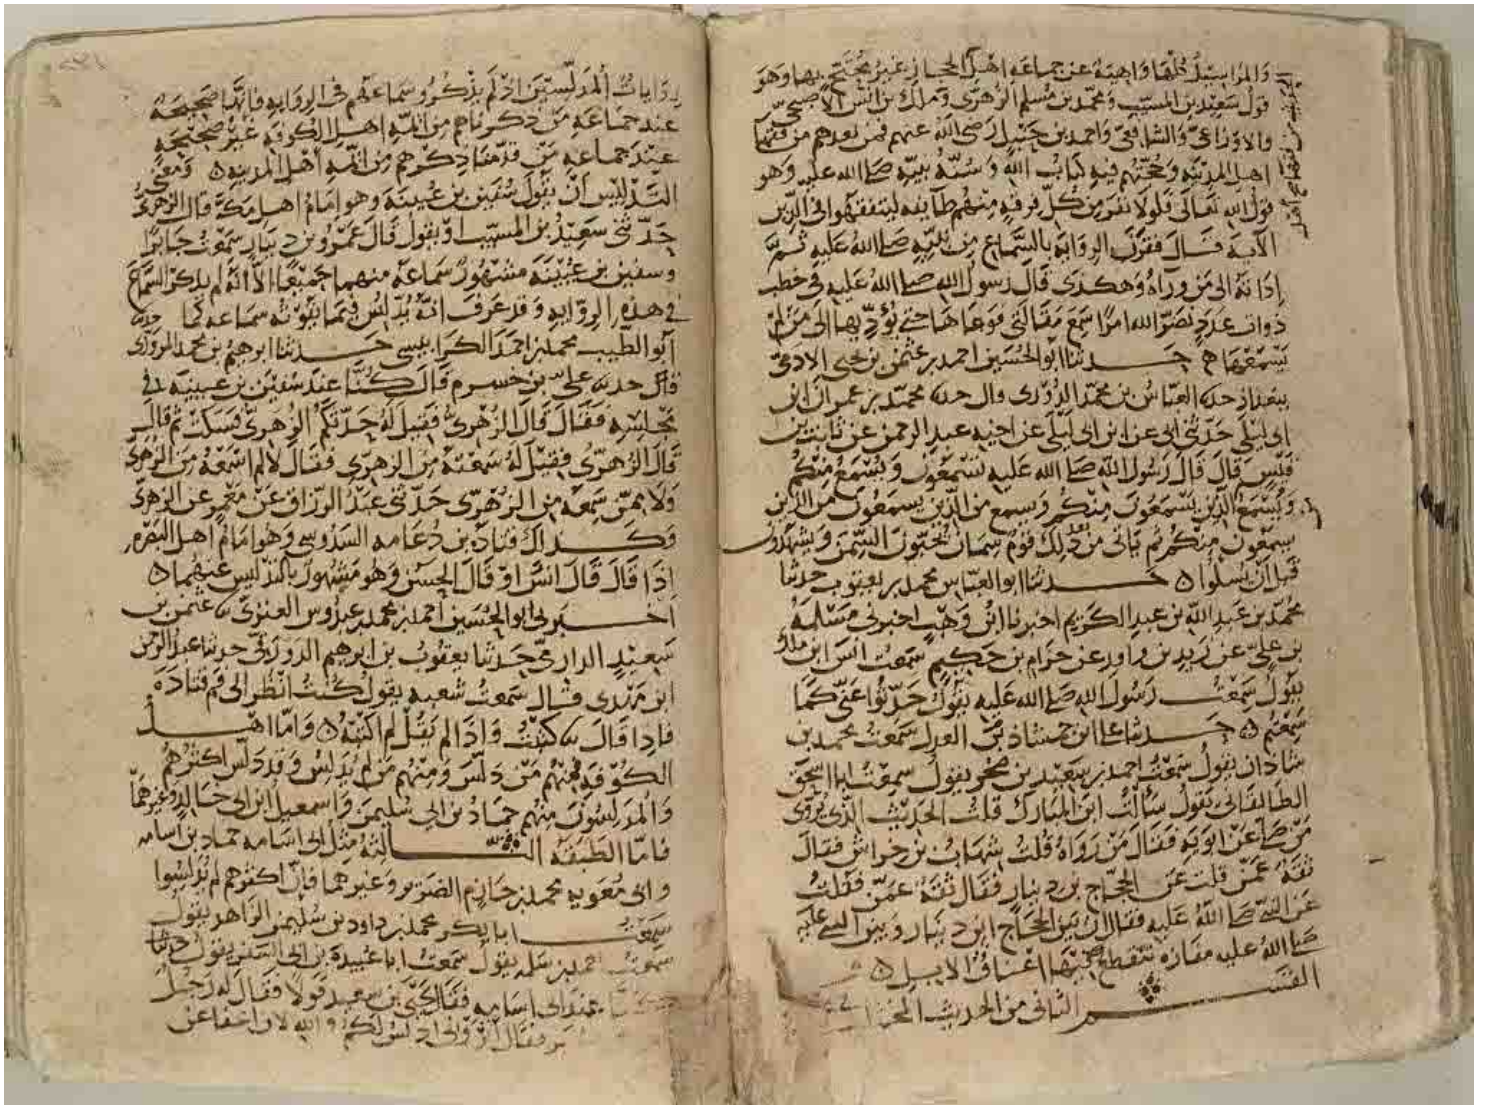 والمراسيل كلها واهية عن جماعة اهل الحجاز غير محتج بها وهو
قول سعيد بن المسيب ومحمد بن مسلم الزهري وملك بن انس الاصبحي
والاوزاعي والشافعي واحمد بن حنبل رضي الله عنهم فمن بعدهم من فقها
اهل المدينة وحجتهم فيه كتاب الله وسنة نبيه صلى الله عليه وهو
قول الله تعالى فلولا نفر من كل فرقة منهم طايفة ليتفقهوا في الدين
الاية قال فقرن الرواية بالسماع من نبيه صلى الله عليه ثم
اداته الى من وراه وهكذى قال رسول الله صلى الله عليه في خطب
ذوات عدد نضر الله امرا سمع مقالتي فوعاها حتى يؤديها الى من لم
يسمعها حدثنا ابو الحسين احمد بن عثمن بن يحيى الادمي
ببغداذ حدثنا العباس بن محمد الدوري قال حدثنا محمد بن عمران ابن
ابي ليلى حدثني ابي عن ابن ابي ليلى عن اخيه عبد الرحمن عن ثابت بن
قيس قال قال رسول الله صلى الله عليه تسمعون ويسمع منكم
ويسمع الذين يسمعون منكم ويسمع من الذين يسمعون من الذين
يسمعون منكم ثم ياتي من بعد ذلك قوم سمان يحبون السمن ويشهدون
قبل ان يسلوا حدثنا ابو العباس محمد بن يعقوب حدثنا
محمد بن عبد الله بن عبد الكريم اخبرنا ابن وهب اخبرني مسلمة
بن علي عن زيد بن واقد عن حزام بن حكيم سمعت انس ابن ملك
يقول سمعت رسول الله صلى الله عليه يقول حدثوا عني كما
سمعتم حدثنا علي ابن حمشاذ بن العدل سمعت محمد بن
شاذان يقول سمعت احمد بن سعيد بن صخر يقول سمعت ابا اسحق
الطالقاني يقول سألت ابن المبارك قلت الحديث الذي يروى
من صلى عن ابويه فقال من رواه قلت شهاب بن خراش فقال
ثقة عمن قلت عن الحجاج بن دينار فقال ثقة عمن فقلت
عن النبي صلى الله عليه فقال ان بين الحجاج ابن دينار وبين النبي عليه
صلى الله عليه مفازة تنقطع فيها اعناق الابل
القسم الثاني من الحديث
روايات المدلسين اذ لم يذكروا سماعهم في الرواية فانها صحيحة
عند جماعة من ذكرناهم من ائمة اهل الكوفة غير صحيحة
عند جماعة من قدمنا ذكرهم من ائمة اهل المدينة ومعنى
التدليس ان يقول سفين بن عيينة وهو امام اهل مكة قال الزهري
حدثني سعيد بن المسيب او يقول قال عمرو بن دينار سمعت جابرا
وسفين بن عيينة مشهور سماعه منهما جميعا الا انه لم يذكر السماع
في هذه الرواية وقد عرف انه يدلس فيما يفوته سماعه كما حدثنا
ابو الطيب محمد بن احمد الكرابيسي حدثنا ابرهيم بن محمد المروزي
قال حدثنا علي بن خشرم قال كنا عند سفين بن عيينة في
مجلسه فقال قال الزهري فقيل له حدثكم الزهري فسكت ثم قال
قال الزهري فقيل له سمعته من الزهري فقال لا لم اسمعه من الزهري
ولا ممن سمعه من الزهري حدثني عبد الرزاق عن معمر عن الزهري
وكذاك قتادة بن دعامة السدوسي وهو امام اهل البصرة
اذا قال قال انس او قال الحسن وهو مشهور بالتدليس عنهما
اخبرني ابو الحسين احمد بن محمد بن عبدوس العنزي عثمن بن
سعيد الدارمي حدثنا يعقوب بن ابرهيم الدورقي حدثنا عبد الرحمن
ابن مهدى قال سمعت شعبه يقول كنت انظر الى فم قتادة
فاذا قال كتبت واذا لم يقل لم اكتبه واما اهل
الكوفة فمنهم من دلس ومنهم من لم يدلس وقد دلس اكثرهم
والمدلسون منهم حماد بن ابي سليمن واسمعيل ابن ابي خالد وغيرهما
فاما الطبقة الثالثة مثل ابي اسامه حماد بن اسامه
وابي معوية محمد بن خازم الضرير وغيرهما فان اكثرهم لم يدلسوا
سمعت ابا بكر محمد بن داود بن سليمن الزاهد يقول
سمعت احمد بن سلمه يقول سمعت ابا عبيدة بن ابي السفر يقول
عند ابي اسامه فقال يحيى بن سعيد قولا فقال له رجل